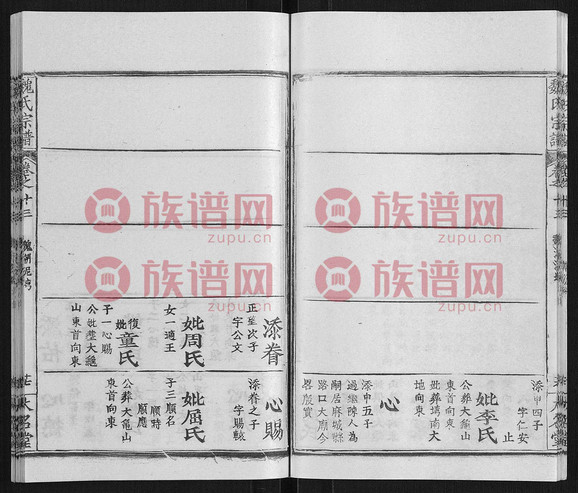 魏氏宗譜
卷之十三
添申四子
字仁安
止
妣李氏
公葬大龜山
東首向東
妣葬塆南大
地向東
心
添申五子
過繼陳人為
嗣居麻城縣
路口大廟今
添眷
正至次子
字公文
妣周氏
女一適王
復妣童氏
子一心賜
公妣塋大龜
山東首向東
心賜
添眷之子
字賜
妣屈氏
子三順名
順時
順應
公葬大龜山
東首向東
魏氏宗譜
卷之十三
大名堂
族谱网
zupu.cn
族谱网
zupu.cn
族谱网
zupu.cn
族谱网
zupu.cn